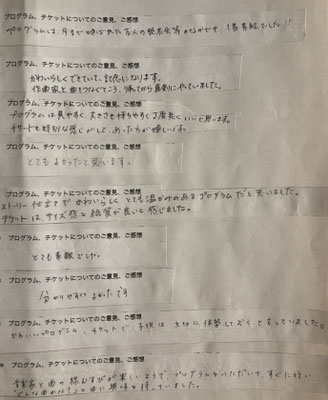 プログラム、チケットについてのご意見、ご感想
プログラムは、今まで
プログラム、チケットについてのご意見、ご感想
かわいらしくできていて、記念になります。
作曲家と曲をつなぐところ、帰ってから真剣にやっていました。
プログラム、チケットについてのご意見、ご感想
プログラムは見やすく、大きさも持ちやすく丁度良いと思います。
チケットも特別な感じがして、あった方が嬉しいです。
プログラム、チケットについてのご意見、ご感想
とてもよかったと思います。
プログラム、チケットについてのご意見、ご感想
ストーリー仕立てでかわいらしく とても温かみのあるプログラムだと思いました。
チケットはサイズ感と紙質が良いと感じました。
プログラム、チケットについてのご意見、ご感想
とても素敵でした。
プログラム、チケットについてのご意見、ご感想
分かりやすくてよかったです
プログラム、チケットについてのご意見、ご感想
かわいいプログラム、チケットで、子供は大切に保管しておくと言っていました。
* プログラム、チケットについてのご意見、ご感想
音楽家と曲の線むすびが楽しいようで、プログラムをいただいて、すぐに
と曲に興味を持っていました。